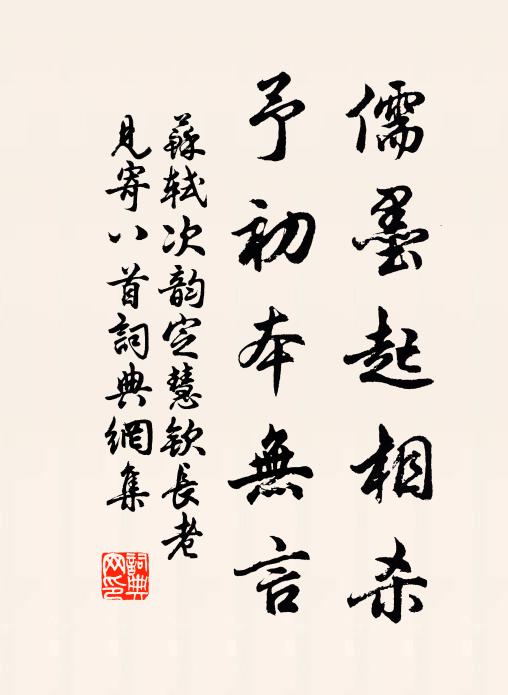 儒墨起相杀
予初本無言
蘇軾次韵定慧欽長老
見寄八首詞典網集
詞典網印